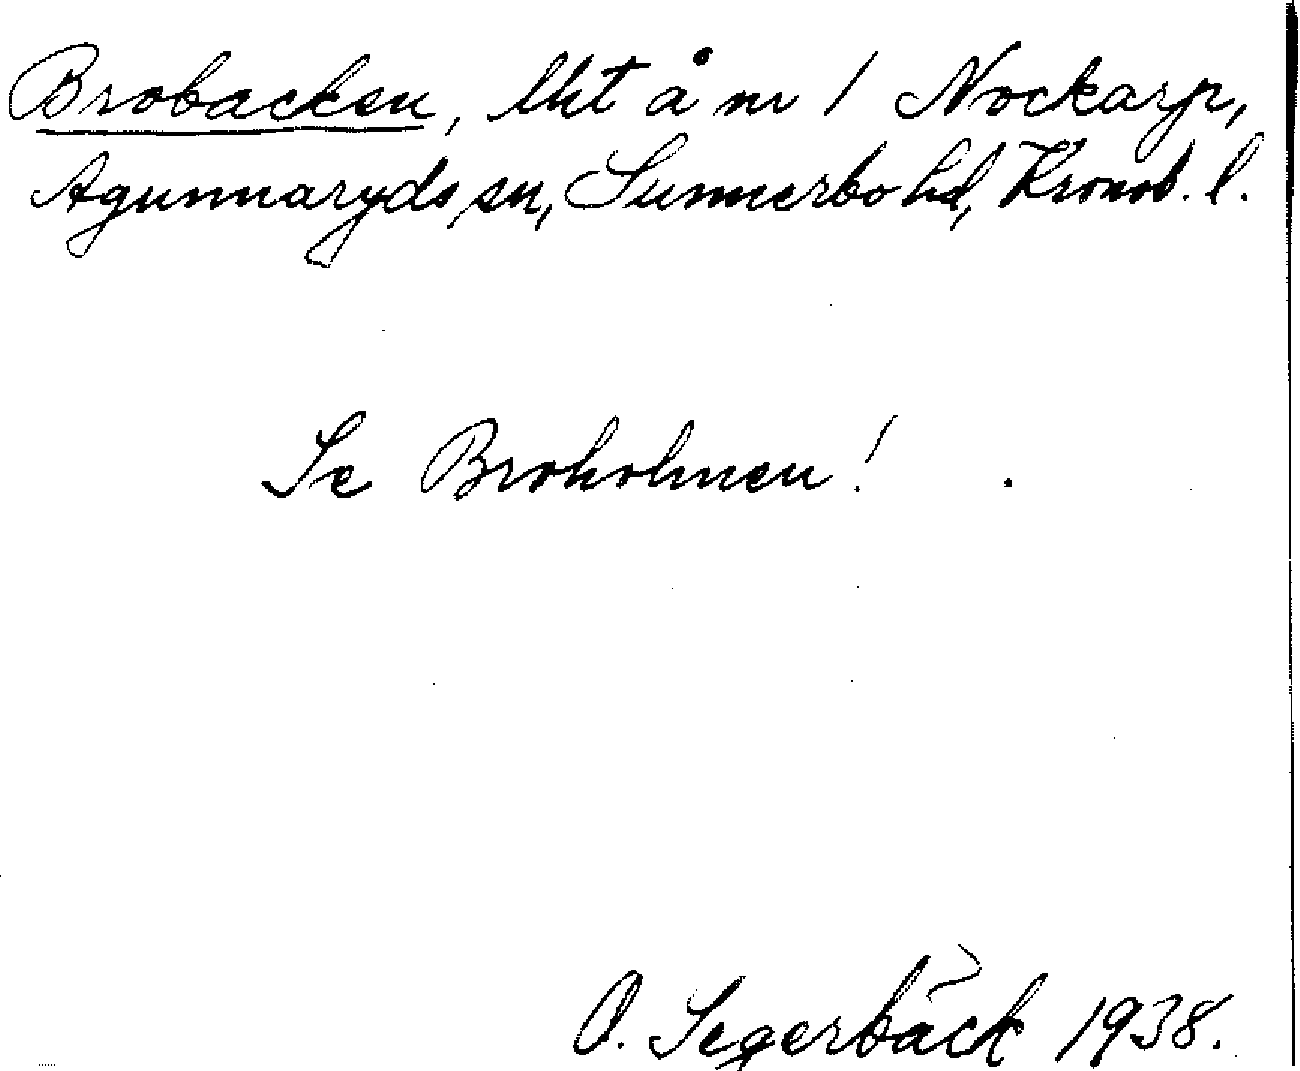 Brobacken, lht å nr 1 Nockarp,
Agunnaryds sn, Sunnerbo hd, Kronob. l.
Se Broholmen!
O. Segerbäck 1938.